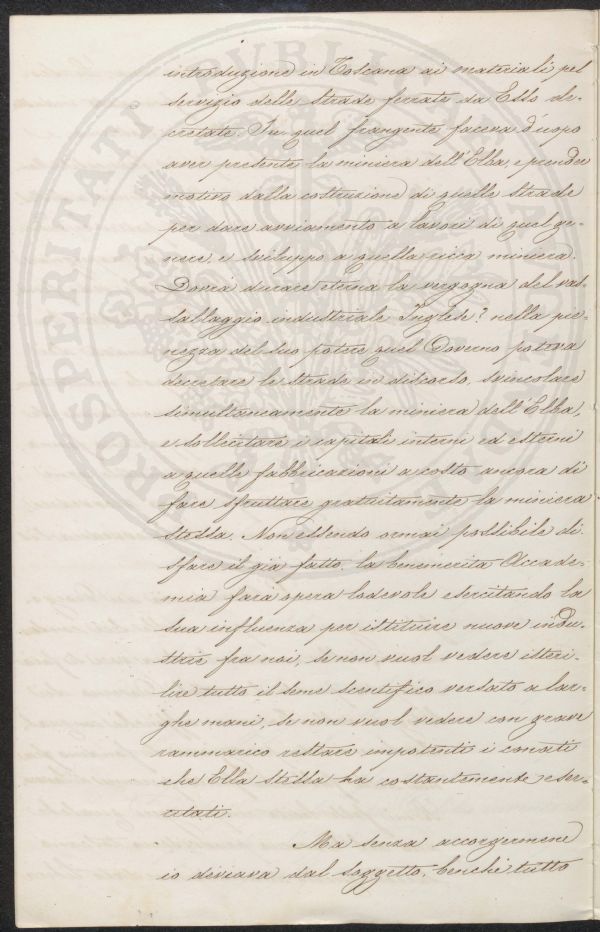 introduzione in Toscana ai materiali pel
servizio delle strade ferrate da Esso de-
cretate. In quel frangente faceva d'uopo
aver presente la miniera dell'Elba, e prender
motivo dalla costruzione di quelle strade
per dare avviamento a lavori di quel ge-
nere, e sviluppo a quella ricca miniera.
Dovrà durare eterna la vergogna del vas-
sallaggio industriale Inglese? nella pie-
nezza del suo potere quel Governo poteva
decretare le strade in discorso, svincolare
simultaneamente la miniera dell'Elba,
e sollecitare i capitali interni ed esterni
a quelle fabbricazioni a costo ancora di
fare sfruttare gratuitamente la miniera
stessa. Non essendo ormai possibile di-
sfare il già fatto, la benemerita Accade-
mia farà opera lodevole esercitando la
sua influenza per istituire nuove indu-
strie fra noi, se non vuol vedere isteri-
lire tutto il seme scentifico versato a lar-
ghe mani, se non vuol vedere con grave
rammarico restare impotenti i conati
che Ella stessa ha costantemente eser-
citati.
Ma senza accorgermene
io deviava dal soggetto, benchè tutto
PROSPERITATI PVBLICAE